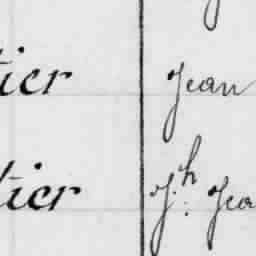 tier Jean
tier Jh. Jea